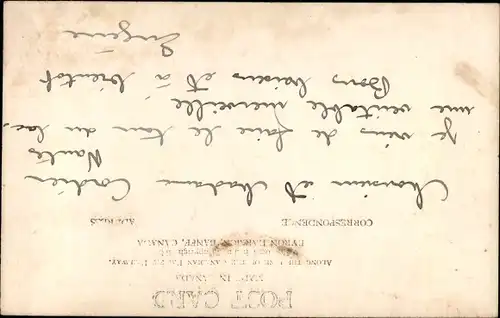 POST CARD
MADE IN CANADA
ALONG THE LINE OF THE CANADIAN PACIFIC RAILWAY.
BYRON HARMON, BANFF, CANADA
CORRESPONDENCE
ADDRESS
Monsieur et Madame Cordier
Nantes
Je viens de faire le tour du lac,
une véritable merveille
Bons baisers et à bientôt
Eugénie